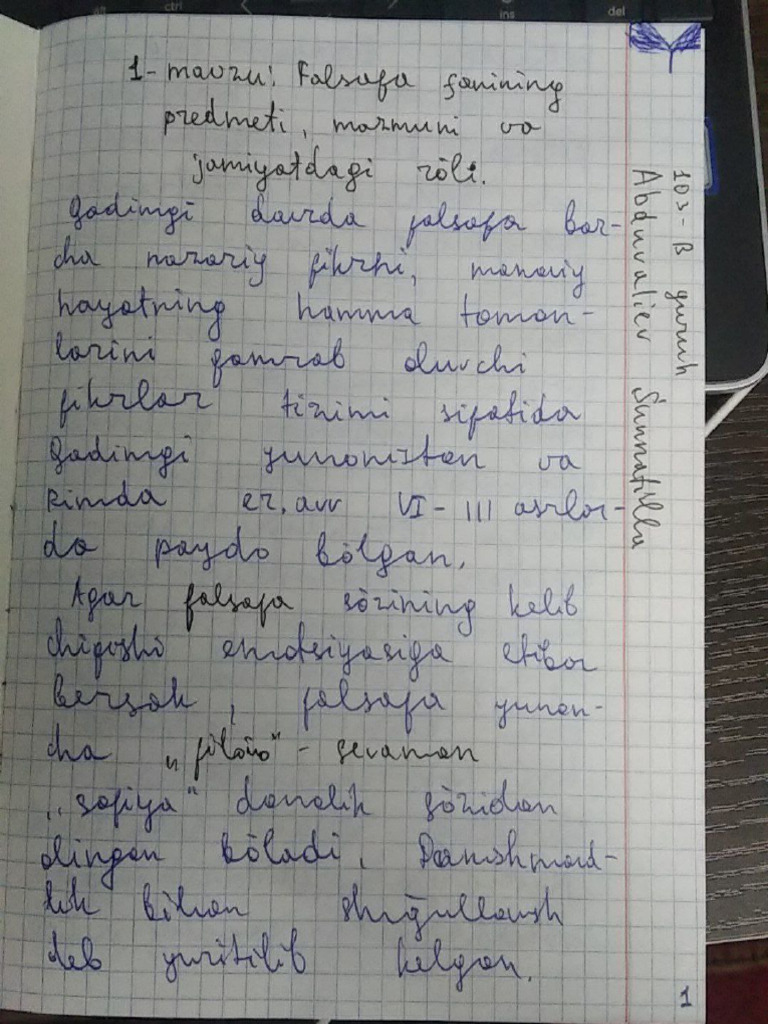 1- mavzu: Falsafa fanining
predmeti, mazmuni va
jamiyatdagi röli.
Qadimgi davrda falsafa bar-
cha nazariy fikrni, manaviy
hayotning hamma tomon-
larini qamrab oluvchi
fikrlar tizimi sifatida
Qadimgi yunoniston va
Rimda er. avv VI - III asrlar-
da paydo bölgan.
Agar falsafa sözining kelib
chiqishi
etibor
bersak, falsafa yunon-
cha „filoio" - sevaman
„sofiya" donolik sözidan
olingan böladi. Danishmand-
lik bilan shuğullanish
deb yuritilib kelgan.
103- B guruh
Abduvaliev Sunnatilla
1